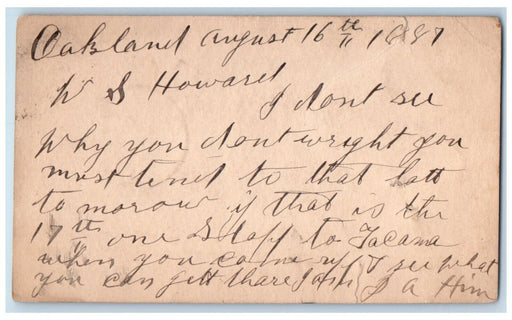 Oakland August 16th 1887
W S Howard
I dont see
Why you dont wright you
must tend to that lott
to morow if that is the
17th one Stopp to Tacama
when you come up I see what
you can gett thare